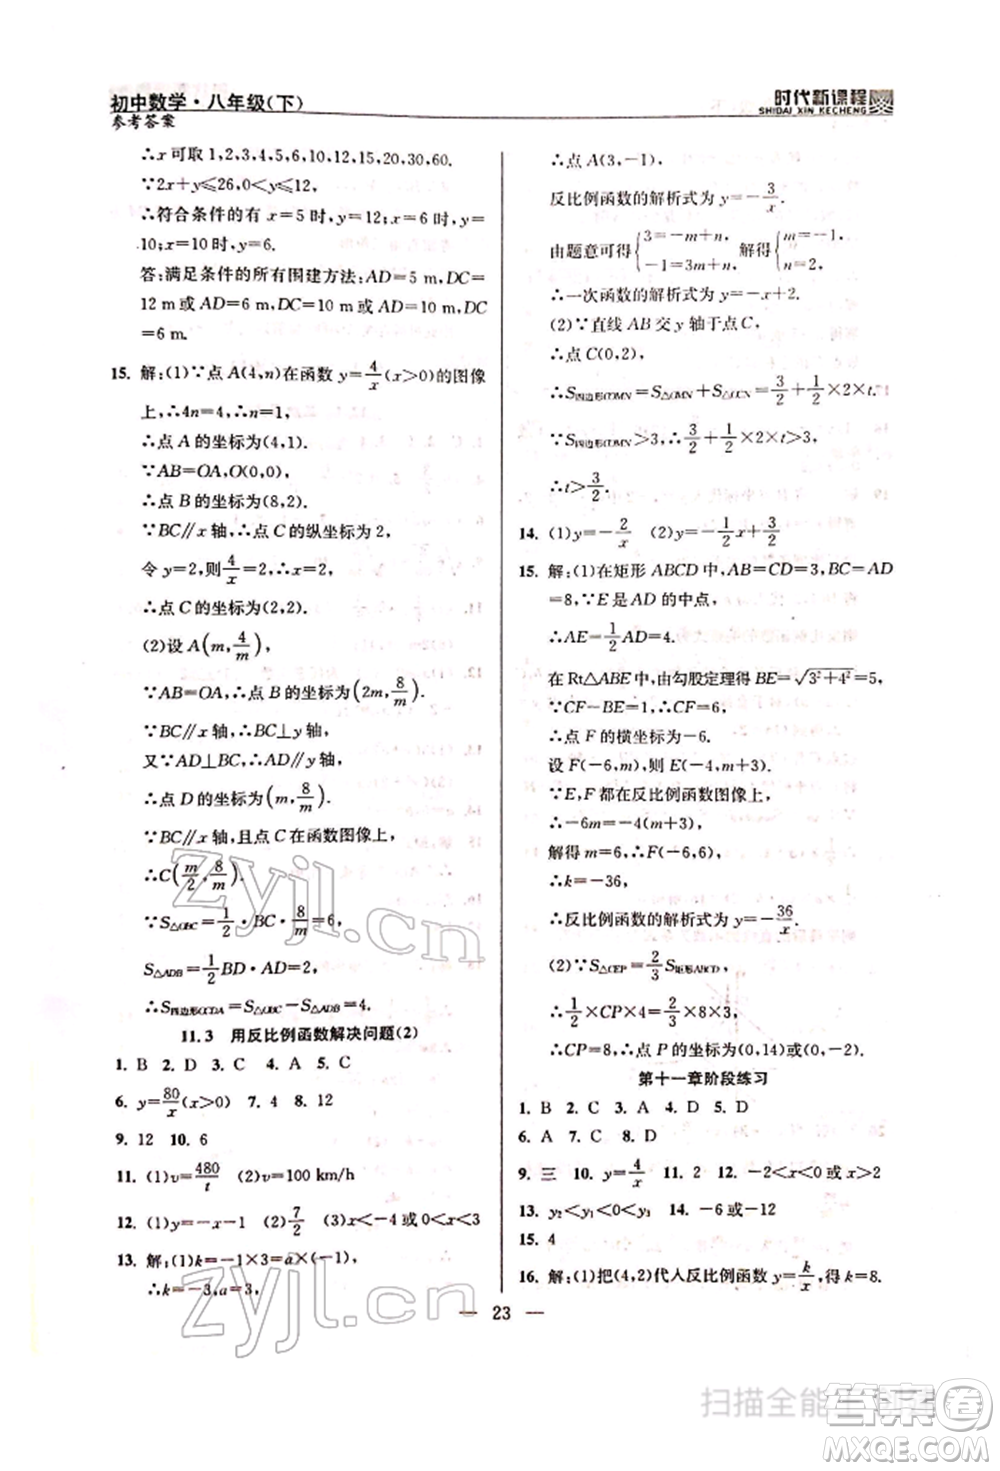 初中数学·八年级(下)
参考答案
时代新课程
SHIDAI XIN KECHENG
∴x 可取 1,2,3,4,5,6,10,12,15,20,30,60.
∵2x+y≤26,0<y≤12,
∴符合条件的有 x=5 时,y=12;x=6 时,y=
10;x=10 时,y=6.
答:满足条件的所有围建方法:AD=5 m,DC=
12 m 或 AD=6 m,DC=10 m 或 AD=10 m,DC
=6 m.
15. 解:(1)∵点 A(4,n)在函数 y=4/x(x>0)的图像
上,∴4n=4,∴n=1,
∴点 A 的坐标为(4,1).
∵AB=OA,O(0,0),
∴点 B 的坐标为(8,2).
∵BC∥x 轴,∴点 C 的纵坐标为 2,
令 y=2,则4/x=2,∴x=2,
∴点 C 的坐标为(2,2).
(2)设 A(m,4/m),
∵AB=OA,∴点 B 的坐标为(2m,8/m).
∵BC∥x 轴,∴BC⊥y 轴,
又∵AD⊥BC,∴AD∥y 轴,
∴点 D 的坐标为(m,8/m).
∵BC∥x 轴,且点 C 在函数图像上,
∴C(m/2,8/m).
∵S△OBC=1/2·BC·8/m=6,
S△ADB=1/2BD·AD=2,
∴S四边形OCDA=S△OBC−S△ADB=4.
11.3 用反比例函数解决问题(2)
1. B 2. D 3. C 4. A 5. C
6. y=80/x(x>0) 7. 4 8. 12
9. 12 10. 6
11. (1)v=480/t (2)v=100 km/h
12. (1)y=−x−1 (2)7/2 (3)x<−4 或0<x<3
13. 解:(1)k=−1×3=a×(−1),
∴k=−3,a=3,
∴点 A(3,−1),
反比例函数的解析式为 y=−3/x.
由题意可得{3=−m+n, −1=3m+n, 解得{m=−1, n=2.
∴一次函数的解析式为 y=−x+2.
(2)∵直线 AB 交 y 轴于点 C,
∴点 C(0,2),
∴S四边形COMN=S△OMN+S△OCN=3/2+1/2×2×t.
∵S四边形COMN>3,∴3/2+1/2×2×t>3,
∴t>3/2.
14. (1)y=−2/x (2)y=−1/2x+3/2
15. 解:(1)在矩形 ABCD 中,AB=CD=3,BC=AD
=8,∵E 是 AD 的中点,
∴AE=1/2AD=4.
在 Rt△ABE 中,由勾股定理得 BE=√3²+4²=5,
∵CF−BE=1,∴CF=6,
∴点 F 的横坐标为−6.
设 F(−6,m),则 E(−4,m+3).
∵E,F 都在反比例函数图像上,
∴−6m=−4(m+3),
解得 m=6,∴F(−6,6),
∴k=−36,
∴反比例函数的解析式为 y=−36/x.
(2)∵S△CEP=2/3S矩形ABCD,
∴1/2×CP×4=2/3×8×3,
∴CP=8,∴点 P 的坐标为(0,14)或(0,−2).
第十一章阶段练习
1. B 2. C 3. A 4. D 5. D
6. A 7. C 8. D
9. 三 10. y=4/x 11. 2 12. −2<x<0或x>2
13. y₂<y₁<0<y₃ 14. −6或−12
15. 4
16. 解:(1)把(4,2)代人反比例函数 y=k/x,得 k=8.
— 23 —
zyjl.cn
zyjl.cn
答案卷
MXQE.COM